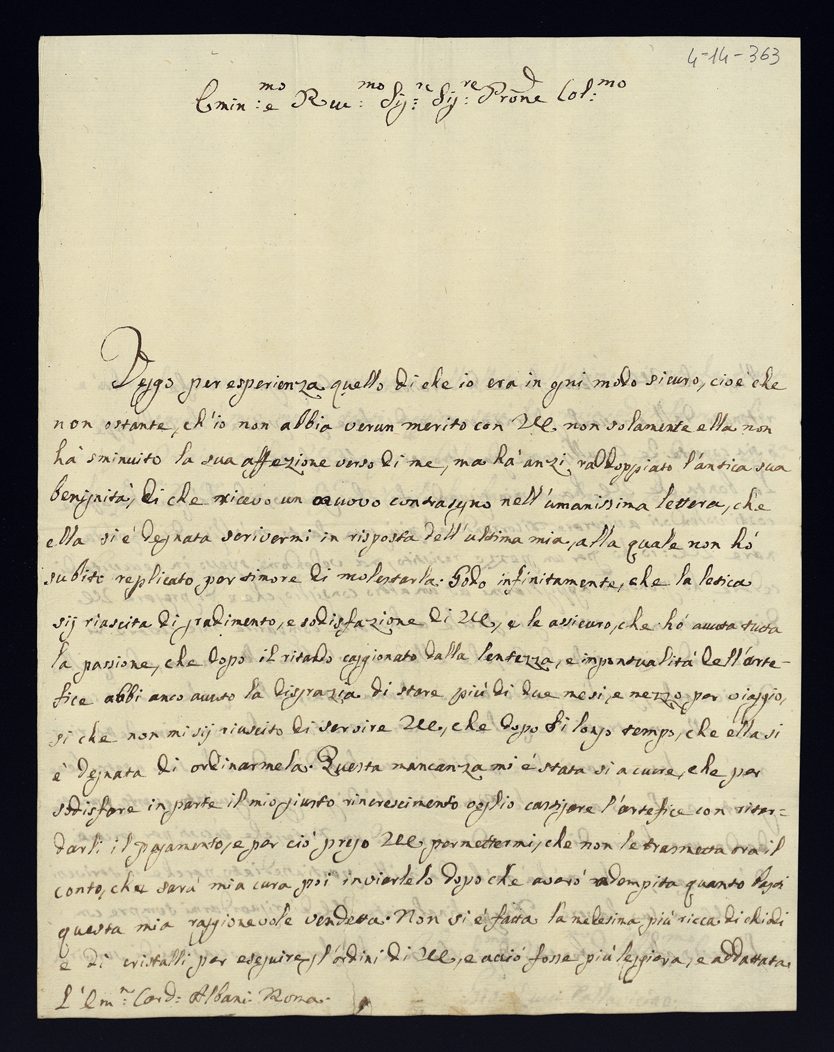 4-14-363
Emin:mo e Rue:mo Sig:re Sig:re Prōne Col:mo
Veggo per esperienza quello di che io era in gni modo sicuro, cioè che
non ostante, ch'io non abbia verun merito con VE. non solamente ella non
hà sminuito la sua affezione verso di me, ma hà anzi raddoppiato l'antica sua
benignità, di che ricevo un nuovo contrasegno nell'umanissima lettera, che
ella si è degnata scrivermi in risposta dell'ultima mia, alla quale non hò
subito replicato per timore di molestarla. Godo infinitamente, che la letica
sij riuscita di gradimento, e sodisfazione di VE., e le assicuro, che hò avuta tutta
la passione, che dopo il ritardo caggionato dalla lentezza, e inpontualità dell'arte-
fice abbi anco avuto la disgrazia di stare più di due mesi, e mezzo per viaggio,
si che non mi sij riuscito di servire VE., che dopo si longo tempo, che ella si
è degnata di ordinarmela. Questa mancanza mi è stata si a cuore, che per
sodisfare in parte il mio giusto rincrescimento voglio castigare l'artefice con ritar=
darli il pagamento, e per ciò prego VE. permettermi, che non le trasmetta ora il
conto, che sarà mia cura poi inviarlelo dopo che averò adempita quanto
questa mia raggionevole vendetta. Non si è fatta la medesima più ricca di chiodi
e di cristalli per eseguire gl'ordini di VE., e acciò fosse più leggiera, e addattata
L'Em:o Card: Albani Roma.